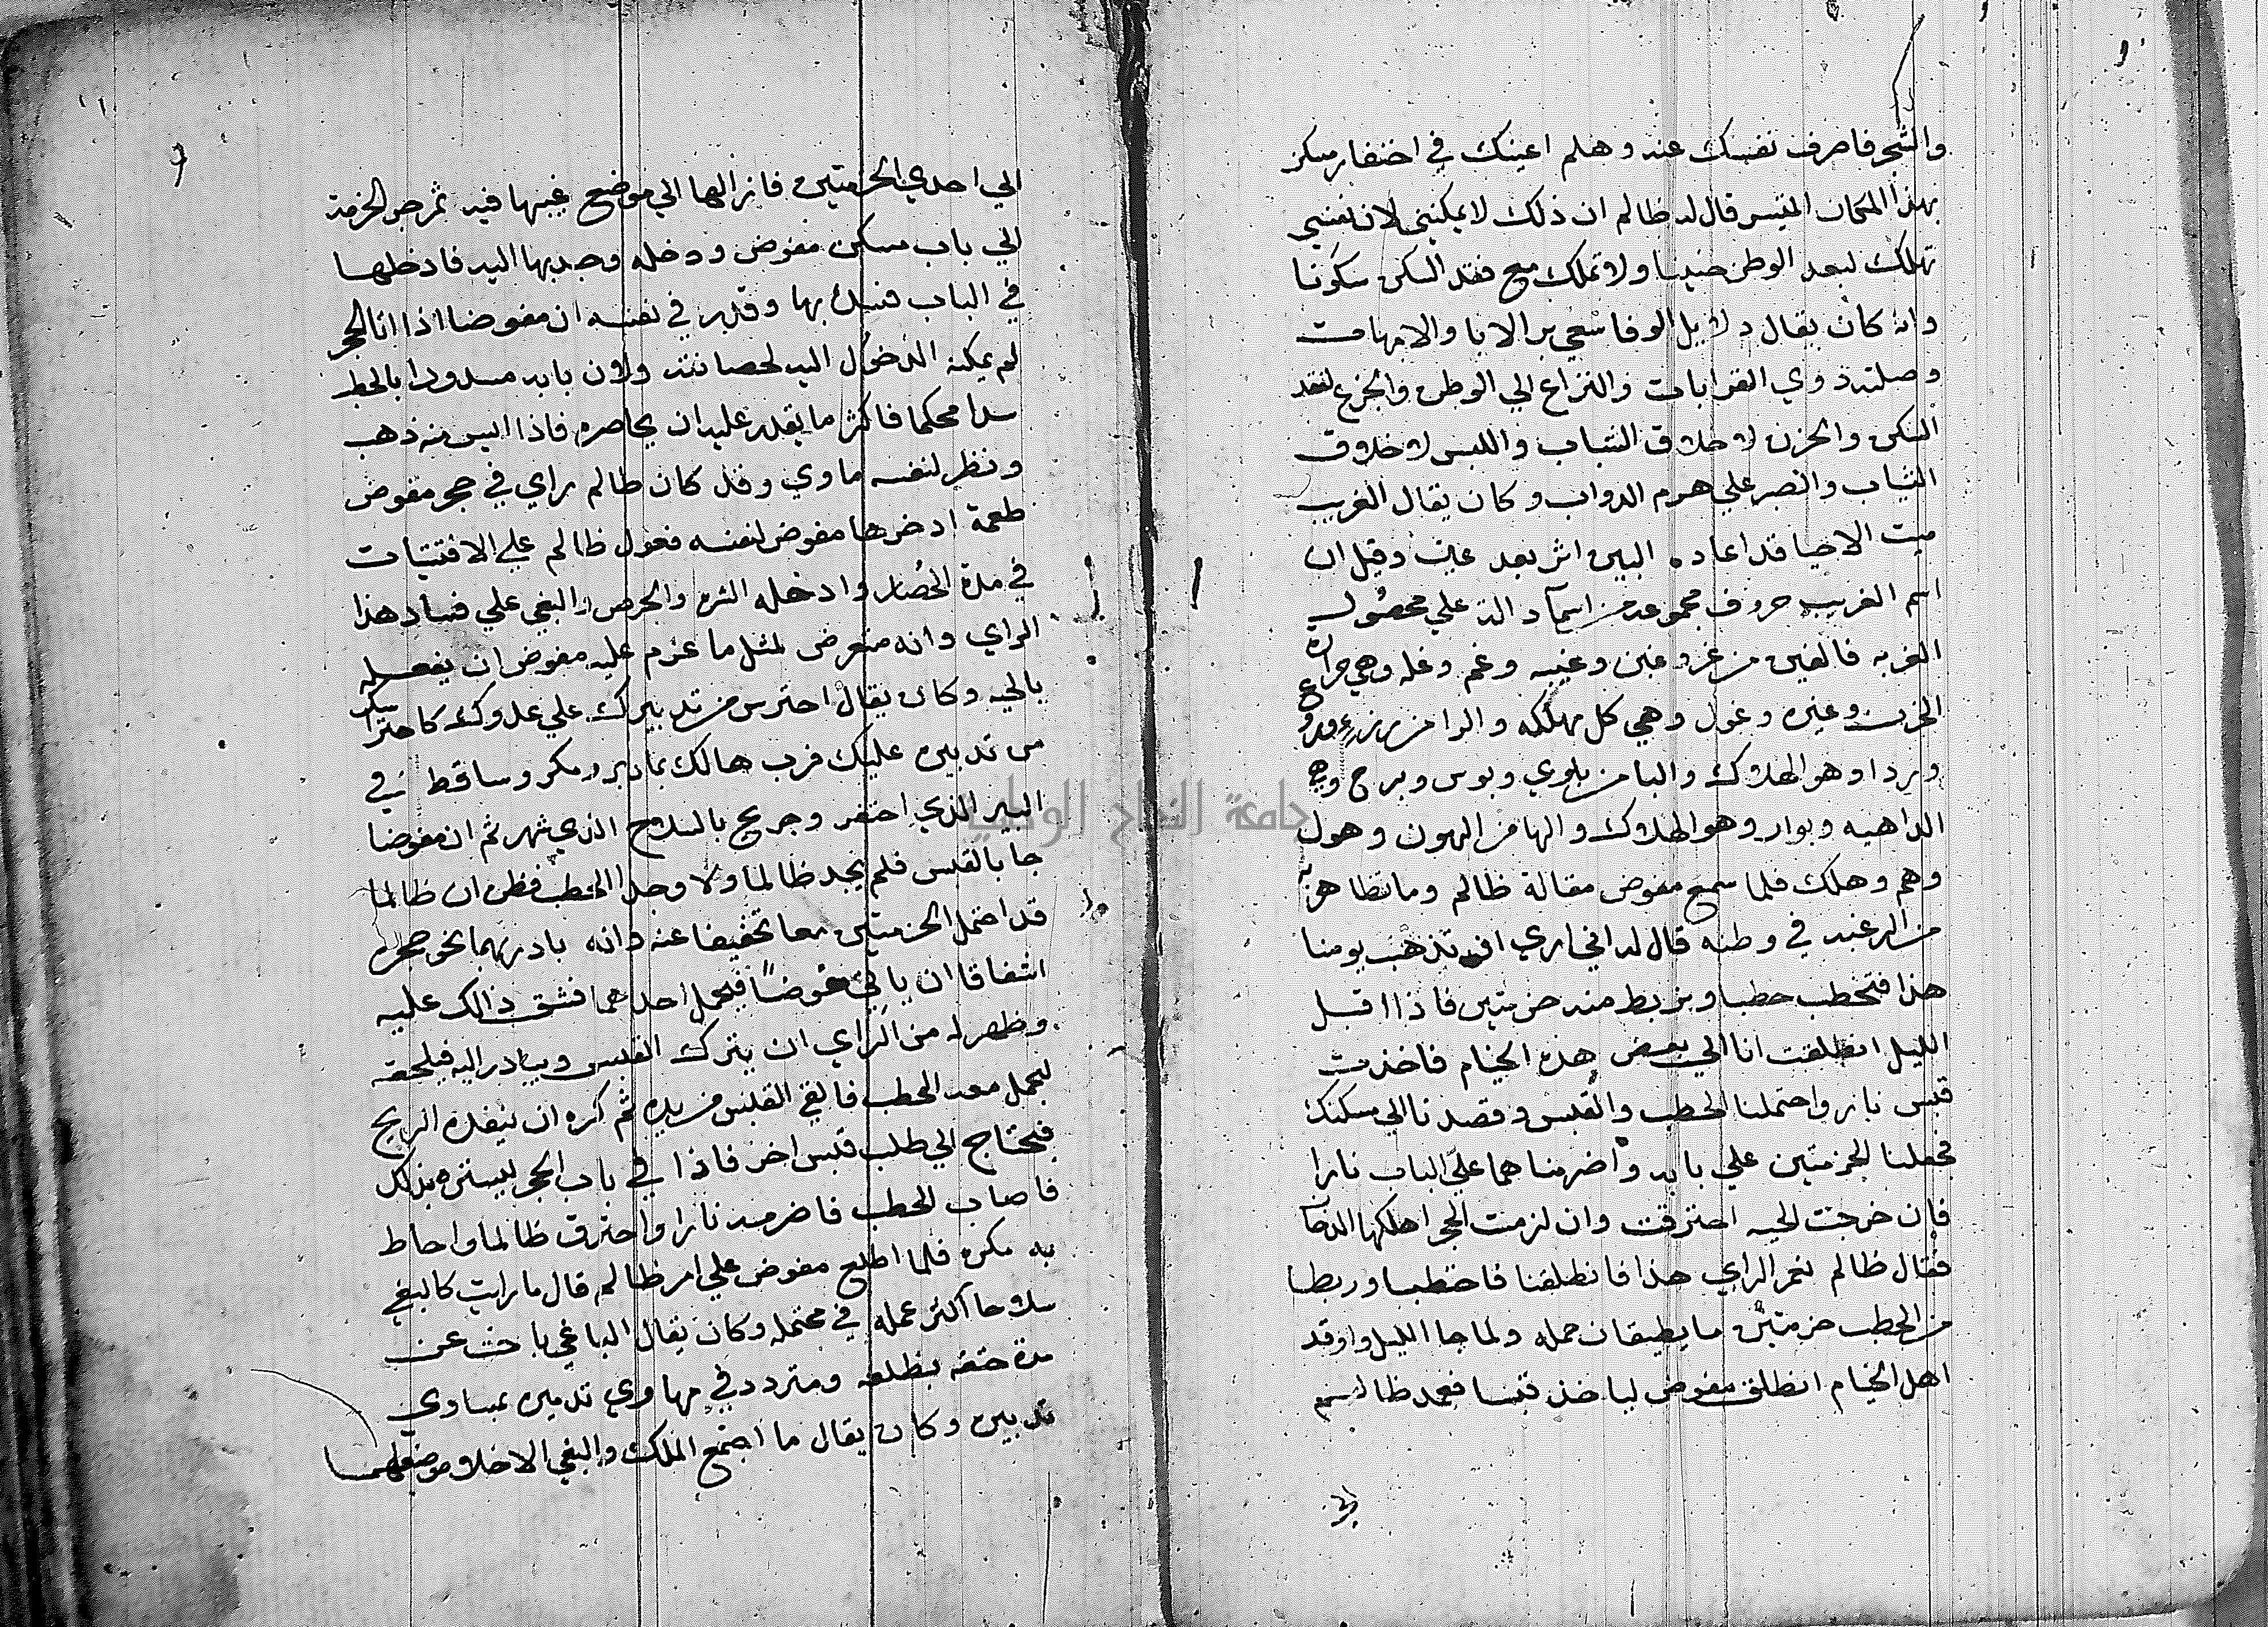 والشجر فاصرف نفسك عنه وهلم اعينك في احتفار مسكن
بهذا المكان النفيس قال له ظالم ان ذلك لا يمكنني لان نفسي
تهلك لبعد الوطن حنينا ولا تملك مع فقد السكن سكونا
وانه كان يقال دلايل الوفا سعي بر الابا والامهات
وصلته ذوي القرابات والنزاع الي الوطن والجزع لفقد
السكن والحزن لاخلاق الشباب واللبس لاخلاق
الثياب والصبر علي هرم الدواب وكان يقال الغريب
ميت الاحيا قد اعاده البين اثر بعد عين وقيل ان
اسم الغريب حروف مجموعة من اسما دالة علي محصول
الغربه فالغين من غرو غبن وغيبه وغم وغله وهي حرارة
الحزن وغيره وغول وهي كل مهلكه والرا من رزء وردع
وردا وهو الهلاك والبا من بلوي وبوس وبرح وهي
الداهيه وبوار وهو الهلاك والها من الهون وهول
وهم وهلك فلما سمع مفوض مقالة ظالم وما تظاهر به
من الرغبه في وطنه قال له اني اري ان تذهب يومنا
هذا فتحطب حطبا ونربط منه حزمتين فاذا اقبل
الليل انطلقت انا الي بعض هذه الخيام فاخذت
قبس نار واحتملنا الحطب والقبس وقصدنا الي مسكنك
فجعلنا الحزمتين علي بابه واضرمناهما علي الباب نارا
فان خرجت الحيه احترقت وان لزمت الجحر اهلكها الدخان
فقال ظالم نعم الراي هذا فانطلقنا فاحتطبا وربطا
من الحطب حزمتين ما يطيقان حمله ولما جا الليل واوقد
اهل الخيام انطلق مفوض لياخذ قبسا فعمد ظالم
الي احدي الحزمتين فازالها الي موضع غيبها فيه ثم جر الحزمة
الي باب مسكن مفوض ودخله وجذبها اليه فادخلها
في الباب فسده بها وقدر في نفسه ان مفوضا اذا اتا الجحر
لم يمكنه الدخول اليه لحصانته ولان بابه مسدودا بالحطب
سدا محكما فاكثر ما يقدر عليه ان يحاصره فاذا ايس منه ذهب
ونظر لنفسه ماوي وقد كان ظالم راي في جحر مفوض
طعمة ادخرها مفوض لنفسه فعول ظالم علي الاقتيات
في مدة الحصار وادخله الشره والحرص والبغي علي فساد هذا
الراي وانه متعرض لمثل ما عزم عليه مفوض ان يفعله
بالحيه وكان يقال احترس من تدبيرك علي عدوك كاحتراسك
من تدبيره عليك فرب هالك بما دبر ومكر وساقط في
البير الذي احتفر وجريح بالسلاح الذي شهر ثم ان مفوضا
جا بالقبس فلم يجد ظالما ولا وجد الحطب فظن ان ظالما
قد احتمل الحزمتين معا تخفيفا عنه وانه بادر بهما نحو جحره
اشفاقا ان ياتي مفوضا فيحمل احدهما فشق ذالك عليه
وظهر له من الراي ان يترك القبس ويبادر اليه فيلحقه
ليحمل معه الحطب فالقي القبس من يده ثم كره ان ينفده الريح
فيحتاج الي طلب قبس اخر فاذا في باب الجحر ليستره بذلك
فاصاب الحطب فاضرمه نارا واحترق ظالما واحاط
به مكره فلما اطلع مفوض علي امر ظالم قال ما رايت كالبغي
سلاحا اكثر عمله في محتمله وكان يقال الباغي باحث عن
مدة حتفه بظلفه ومتردد في مهاوي تدميره بمساوي
تدبيره وكان يقال ما اجتمع الملك والبغي الا خلا موضعهما
جامعة النجاح الوطنية